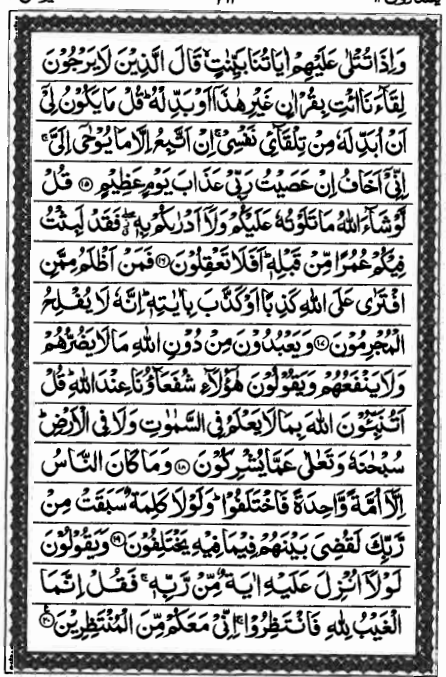 وَاِذَا تُتْلٰى عَلَيْهِمْ اٰيَاتُنَا بَيِّنٰتٍ ۙ قَالَ الَّذِيْنَ لَا يَرْجُوْنَ
لِقَآءَنَا ائْتِ بِقُرْاٰنٍ غَيْرِ هٰذَاۤ اَوْ بَدِّلْهُ ؕ قُلْ مَا يَكُوْنُ لِيْۤ
اَنْ اُبَدِّلَهٗ مِنْ تِلْقَآئِ نَفْسِيْ ۚ اِنْ اَتَّبِعُ اِلَّا مَا يُوْحٰۤى اِلَيَّ ۚ
اِنِّيْۤ اَخَافُ اِنْ عَصَيْتُ رَبِّيْ عَذَابَ يَوْمٍ عَظِيْمٍ ﴿۱۵﴾ قُلْ
لَّوْ شَآءَ اللّٰهُ مَا تَلَوْتُهٗ عَلَيْكُمْ وَلَاۤ اَدْرٰىكُمْ بِهٖ ۖ فَقَدْ لَبِثْتُ
فِيْكُمْ عُمُرًا مِّنْ قَبْلِهٖ ؕ اَفَلَا تَعْقِلُوْنَ ﴿۱۶﴾ فَمَنْ اَظْلَمُ مِمَّنِ
افْتَرٰى عَلَى اللّٰهِ كَذِبًا اَوْ كَذَّبَ بِاٰيٰتِهٖ ؕ اِنَّهٗ لَا يُفْلِحُ
الْمُجْرِمُوْنَ ﴿۱۷﴾ وَيَعْبُدُوْنَ مِنْ دُوْنِ اللّٰهِ مَا لَا يَضُرُّهُمْ
وَلَا يَنْفَعُهُمْ وَيَقُوْلُوْنَ هٰۤؤُلَآءِ شُفَعَآؤُنَا عِنْدَ اللّٰهِ ؕ قُلْ
اَتُنَبِّئُوْنَ اللّٰهَ بِمَا لَا يَعْلَمُ فِي السَّمٰوٰتِ وَلَا فِي الْاَرْضِ ؕ
سُبْحٰنَهٗ وَتَعٰلٰى عَمَّا يُشْرِكُوْنَ ﴿۱۸﴾ وَمَا كَانَ النَّاسُ
اِلَّاۤ اُمَّةً وَّاحِدَةً فَاخْتَلَفُوْا ؕ وَلَوْلَا كَلِمَةٌ سَبَقَتْ مِنْ
رَّبِّكَ لَقُضِيَ بَيْنَهُمْ فِيْمَا فِيْهِ يَخْتَلِفُوْنَ ﴿۱۹﴾ وَيَقُوْلُوْنَ
لَوْلَاۤ اُنْزِلَ عَلَيْهِ اٰيَةٌ مِّنْ رَّبِّهٖ ۚ فَقُلْ اِنَّمَا
الْغَيْبُ لِلّٰهِ فَانْتَظِرُوْا ۚ اِنِّيْ مَعَكُمْ مِّنَ الْمُنْتَظِرِيْنَ ﴿۲۰﴾